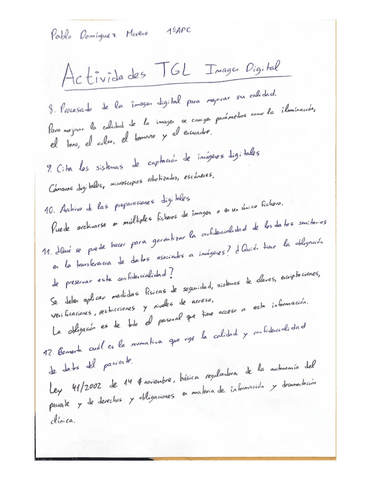 Pablo Domínguez Moreno 1ºAPC
Actividades TGL Imagen Digital
8. Procesado de la imagen digital para mejorar su calidad.
Para mejorar la calidad de la imagen se corrigen parámetros como la iluminación,
el tono, el color, el tamaño y el encuadre.
9. Cita los sistemas de captación de imágenes digitales
Cámaras digitales, microscopios robotizados, escáneres.
10. Archivo de las preparaciones digitales
Puede archivarse en múltiples ficheros de imagen o en un único fichero.
11. ¿Qué se puede hacer para garantizar la confidencialidad de los datos sanitarios
en la transferencia de datos asociados a imágenes? ¿Quién tiene la obligación
de preservar esta confidencialidad?
Se deben aplicar medidas físicas de seguridad, sistemas de claves, encriptaciones,
verificaciones, restricciones y niveles de acceso.
La obligación es de todo el personal que tiene acceso a esta información.
12. Comenta cuál es la normativa que rige la calidad y confidencialidad
de datos del paciente.
Ley 41/2002 de 14 noviembre, básica reguladora de la autonomía del
paciente y de derechos y obligaciones en materia de información y documentación
clínica.